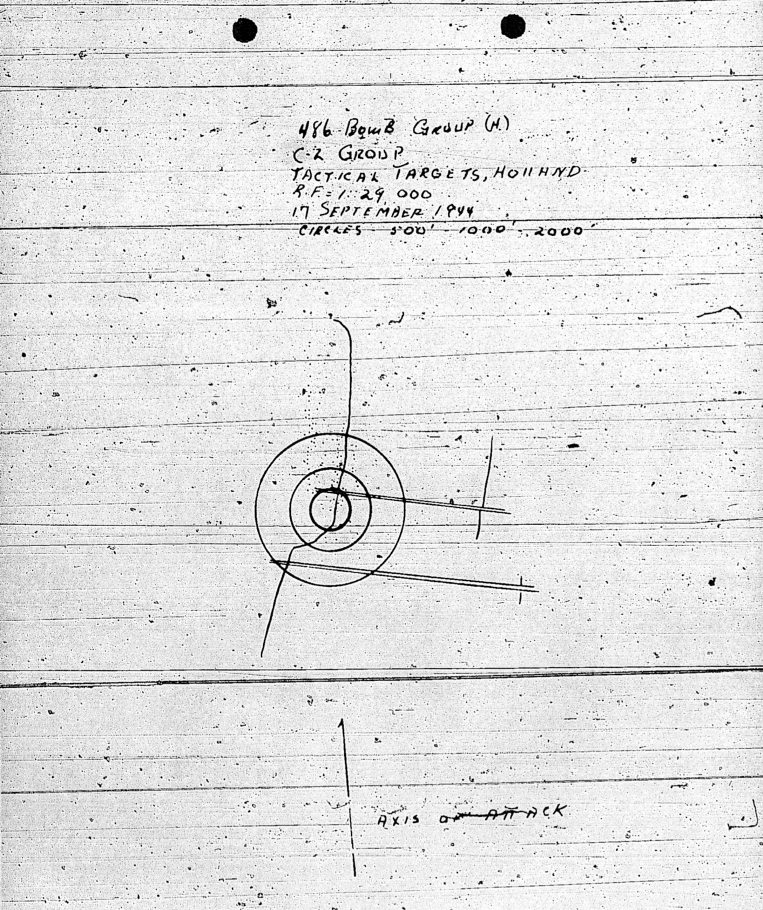 486 BOMB GROUP (H)
C-2 GROUP
TACTICAL TARGETS, HOLLAND
R.F. = 1:29,000
17 SEPTEMBER 1944
CIRCLES - 500' - 1000' - 2000'
AXIS OF ATTACK